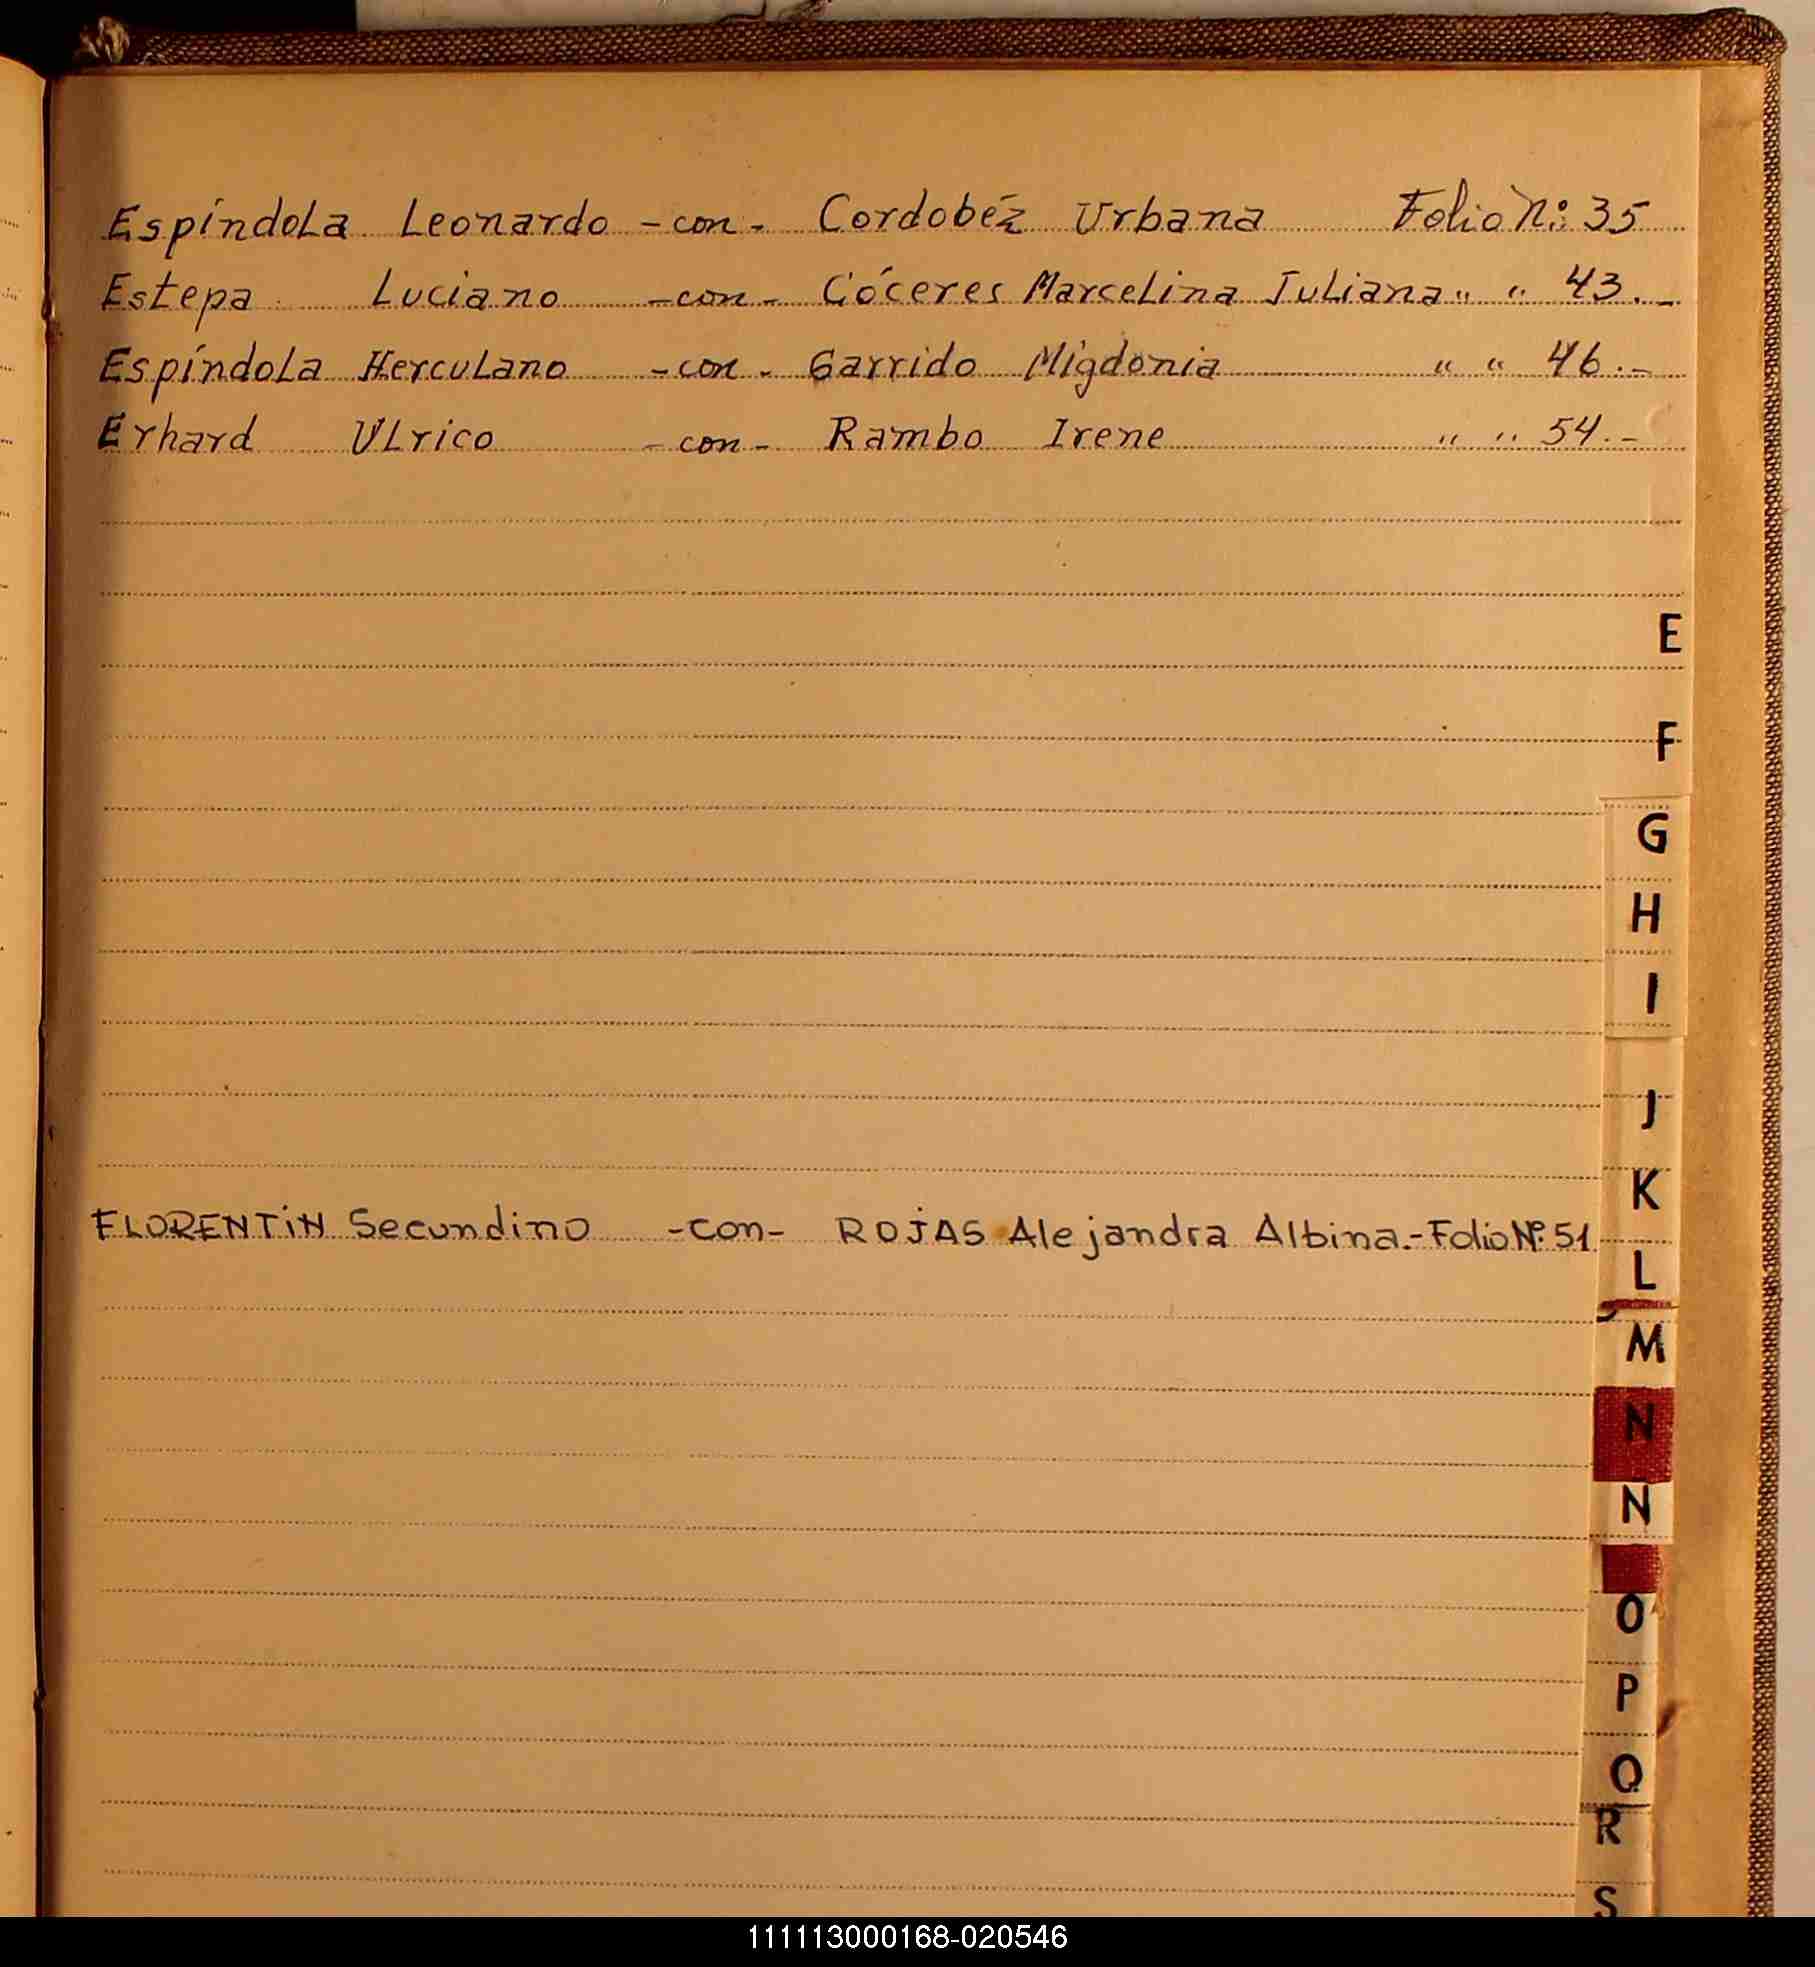 Espíndola Leonardo -con- Cordobéz Urbana Folio Nº: 35
Estepa Luciano -con- Cóceres Marcelina Juliana " " 43.-
Espíndola Herculano -con- Garrido Migdonia " " 46.-
Erhard Ulrico -con- Rambo Irene " " 54.-
E
F
G
H
I
J
K
FLORENTIN Secundino -con- ROJAS Alejandra Albina.- Folio Nº: 51
L
M
N
N
O
P
Q
R
S
111113000168-020546